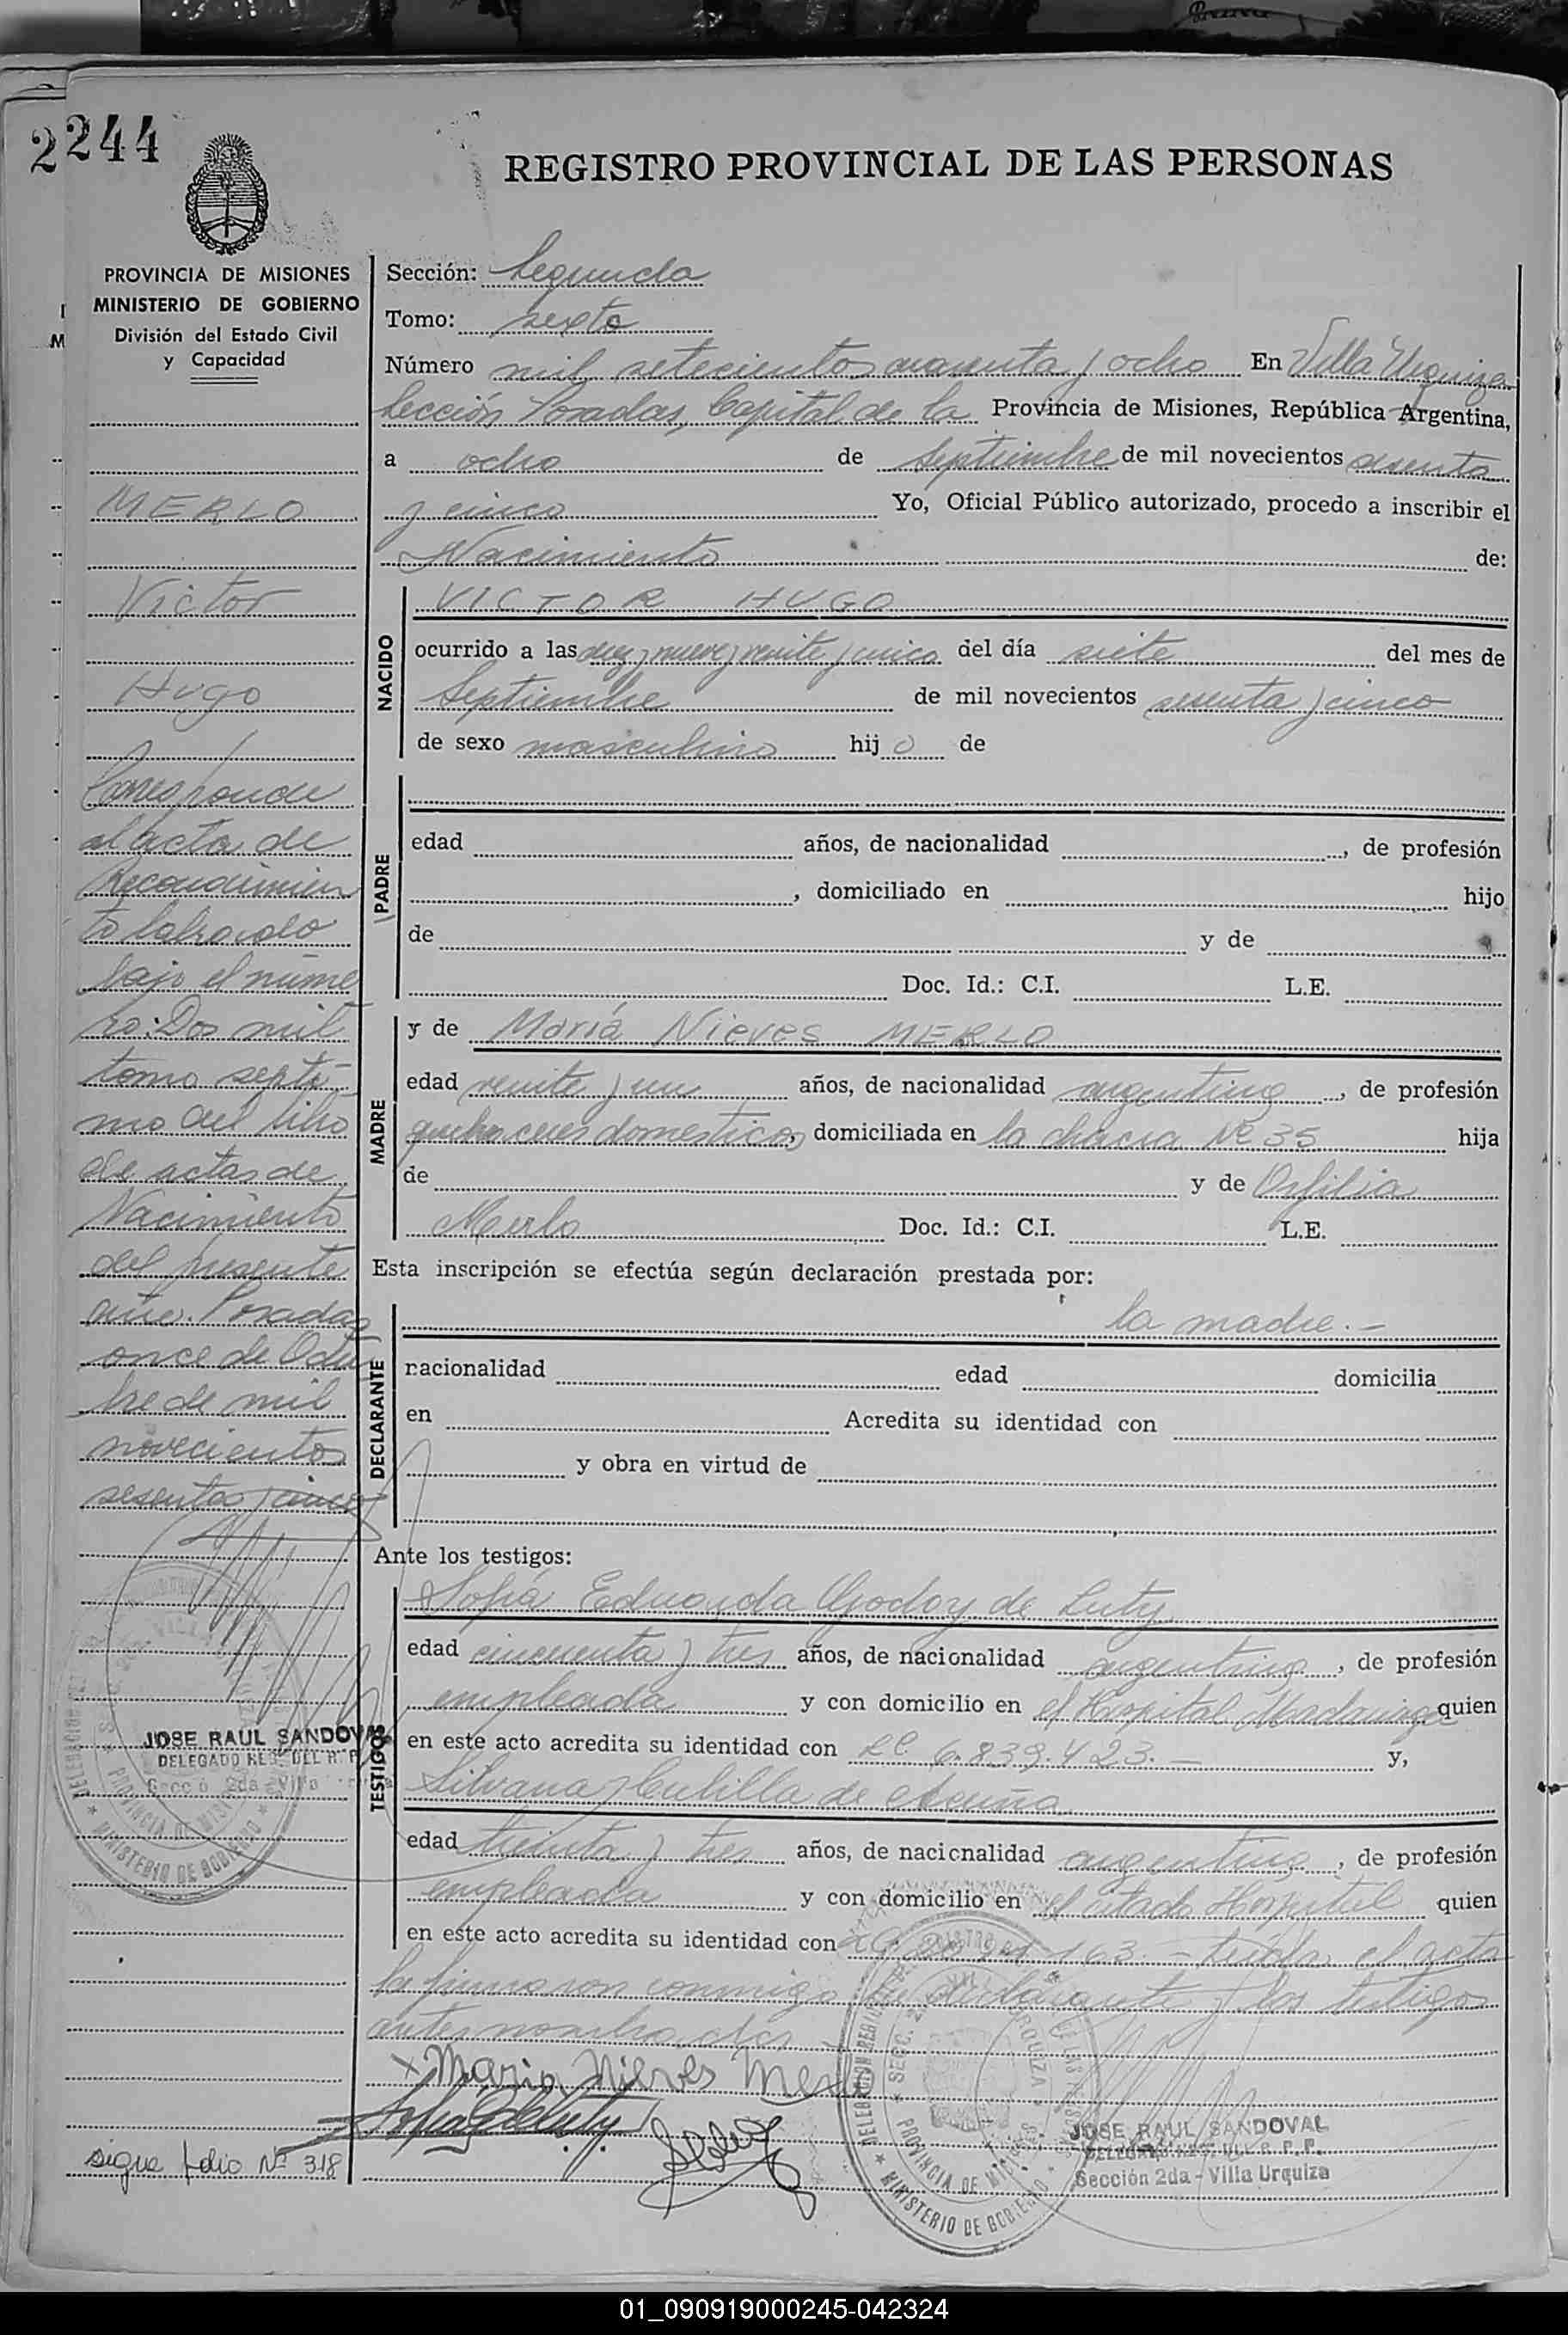 2244
REGISTRO PROVINCIAL DE LAS PERSONAS
PROVINCIA DE MISIONES
MINISTERIO DE GOBIERNO
División del Estado Civil
y Capacidad
MERLO
Victor
Hugo
Corresponde
al acta de
Reconocimien
to labrado
bajo el núme
ro: Dos mil
tomo septi-
mo del libro
de actas de
Nacimiento
del presente
año. Posadas
once de Octu
bre de mil
novecientos
sesenta y cinco
JOSE RAUL SANDOVAL
DELEGADO
MINISTERIO DE GOBIERNO
PROVINCIA DE MISIONES
sigue folio Nº 318
Sección: Segunda
Tomo: sexto
Número mil setecientos cuarenta y ocho En Villa Urquiza
Sección Posadas, Capital de la Provincia de Misiones, República Argentina,
a ocho de Septiembre de mil novecientos sesenta
y cinco Yo, Oficial Público autorizado, procedo a inscribir el
Nacimiento de:
NACIDO
VICTOR HUGO
ocurrido a las diez y nueve y veinte y cinco del día siete del mes de
Septiembre de mil novecientos sesenta y cinco
de sexo masculino hijo de
PADRE
edad años, de nacionalidad , de profesión
, domiciliado en hijo
de y de
Doc. Id.: C.I. L.E.
MADRE
y de María Nieves MERLO
edad veinte y un años, de nacionalidad argentina, de profesión
quehaceres domesticos, domiciliada en la chacra Nº 35 hija
de y de Orfilia
Merlo Doc. Id.: C.I. L.E.
Esta inscripción se efectúa según declaración prestada por:
DECLARANTE
la madre.-
nacionalidad edad domicilia
en Acredita su identidad con
y obra en virtud de
Ante los testigos:
TESTIGOS
Sofía Eduarda Godoy de Luty
edad cincuenta y tres años, de nacionalidad argentina, de profesión
empleada y con domicilio en el Hospital Madariaga quien
en este acto acredita su identidad con LC. 6.839.423.- y,
Silvana de Acuña
edad treinta y tres años, de nacionalidad argentina, de profesión
empleada y con domicilio en el citado Hospital quien
en este acto acredita su identidad con 163.- leída el acta
la firmaron conmigo la declarante y los testigos
antes nombrados
x Maria Nieves Merlo
JOSE RAUL SANDOVAL
Sección 2da - Villa Urquiza
PROVINCIA DE MISIONES
MINISTERIO DE GOBIERNO
01_090919000245-042324